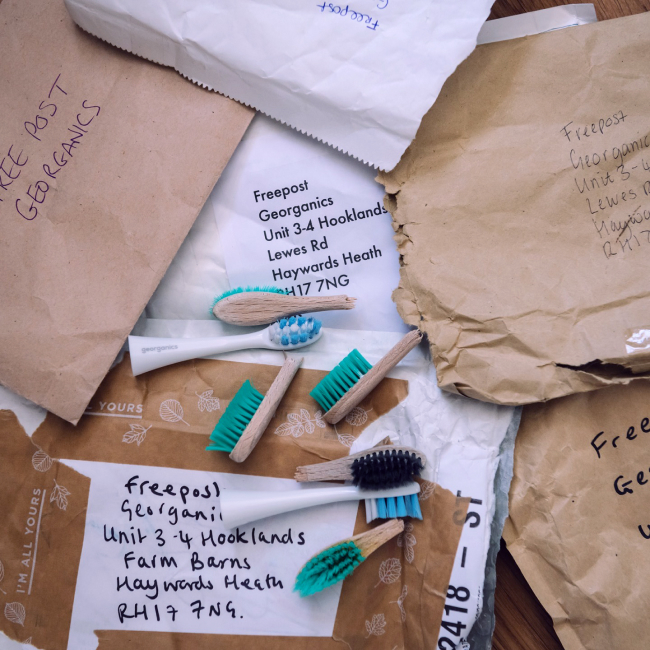 Freepost
FREE POST
GEORGANICS
Freepost
Georganics
Unit 3-4 Hooklands
Lewes Rd
Haywards Heath
RH17 7NG
Freepost
Georganic
Unit 3-4
Lewes R
Haywa
RH17
georganics
YOURS
I'M ALL YOURS
Freepost
Georgani
Unit 3-4 Hooklands
Farm Barns
Haywards Heath
RH17 7NG.
2418 – ST
Free
Ge